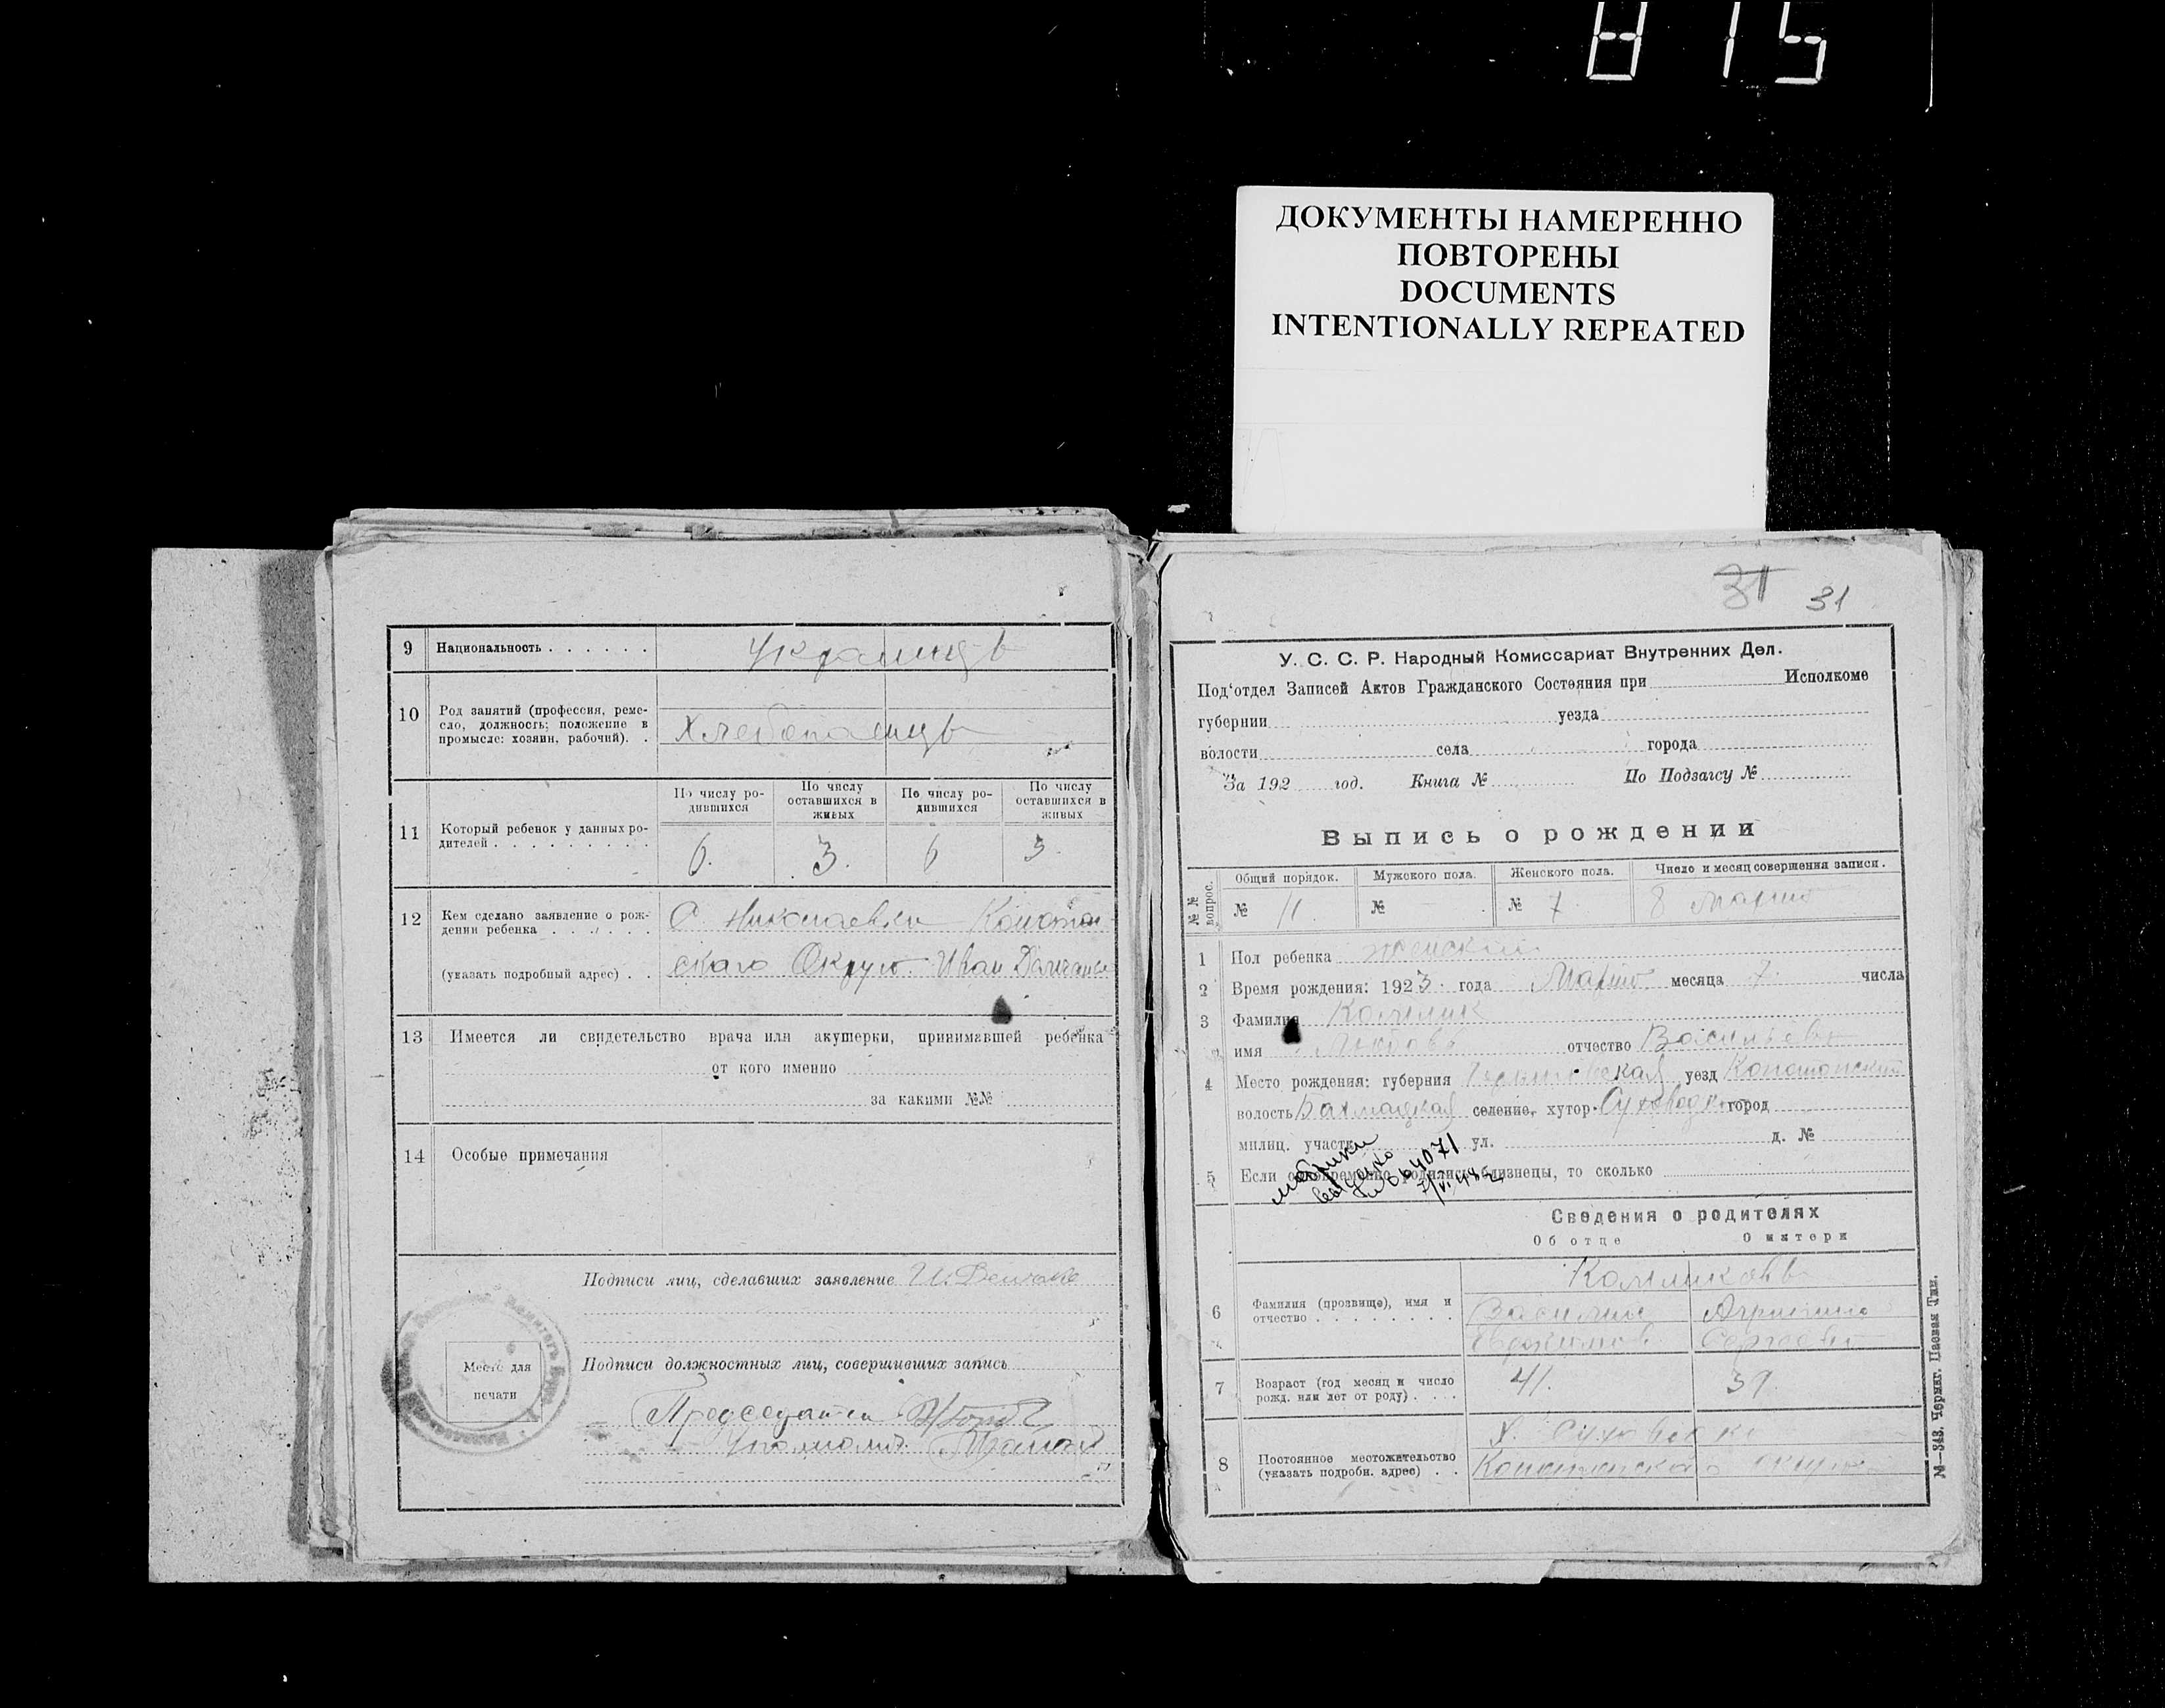 815
ДОКУМЕНТЫ НАМЕРЕННО
ПОВТОРЕНЫ
DOCUMENTS
INTENTIONALLY REPEATED
9 Национальность . . . . . . украинцы
10 Род занятий (профессия, реме-
сло, должность; положение в
промысле: хозяин, рабочий). . Хлебопашцы
По числу ро-
дившихся
По числу
оставшихся в
живых
По числу ро-
дившихся
По числу
оставшихся в
живых
11 Который ребенок у данных ро-
дителей . . . . . . . . .
6. 3. 6 3.
12 Кем сделано заявление о рож-
дении ребенка . . . . . . С Николаевки Конотоп-
(указать подробный адрес) . . скаго Округа Иван
13 Имеется ли свидетельство врача или акушерки, принимавшей ребенка
от кого именно
за какими №№
14 Особые примечания
Подписи лиц, сделавших заявление
Место для
печати
Подписи должностных лиц, совершивших запись
Председатель
31 31
У. С. С. Р. Народный Комиссариат Внутренних Дел.
Под‘отдел Записей Актов Гражданского Состояния при Исполкоме
губернии уезда
волости села города
За 192 год. Книга № По Подзагсу №
Выпись о рождении
№ № вопрос.
Общий порядок. Мужского пола. Женского пола. Число и месяц совершения записи.
№ 11. № — № 7 8 марта
1 Пол ребенка женский
2 Время рождения: 1923 года Март месяца 7 числа
3 Фамилия
имя Любовь отчество Васильевн
4 Место рождения: губерния Черниговская уезд Конотопский
волость Бахмацкая селение, хутор Суховодка город
милиц. участк ул. д. №
5 Если одновременно родились близнецы, то сколько
Сведения о родителях
Об отце О матери
6 Фамилия (прозвище), имя и
отчество . . . . . . . .
Василий
Евдокимов Сергеевн
7 Возраст (год месяц и число
рожд. или лет от роду) . . . .
41. 39
8 Постоянное местожительство
(указать подробн. адрес) . .
Х. Суховодка
Конотопского округа
№—343. Черниг. Паевая Тип.